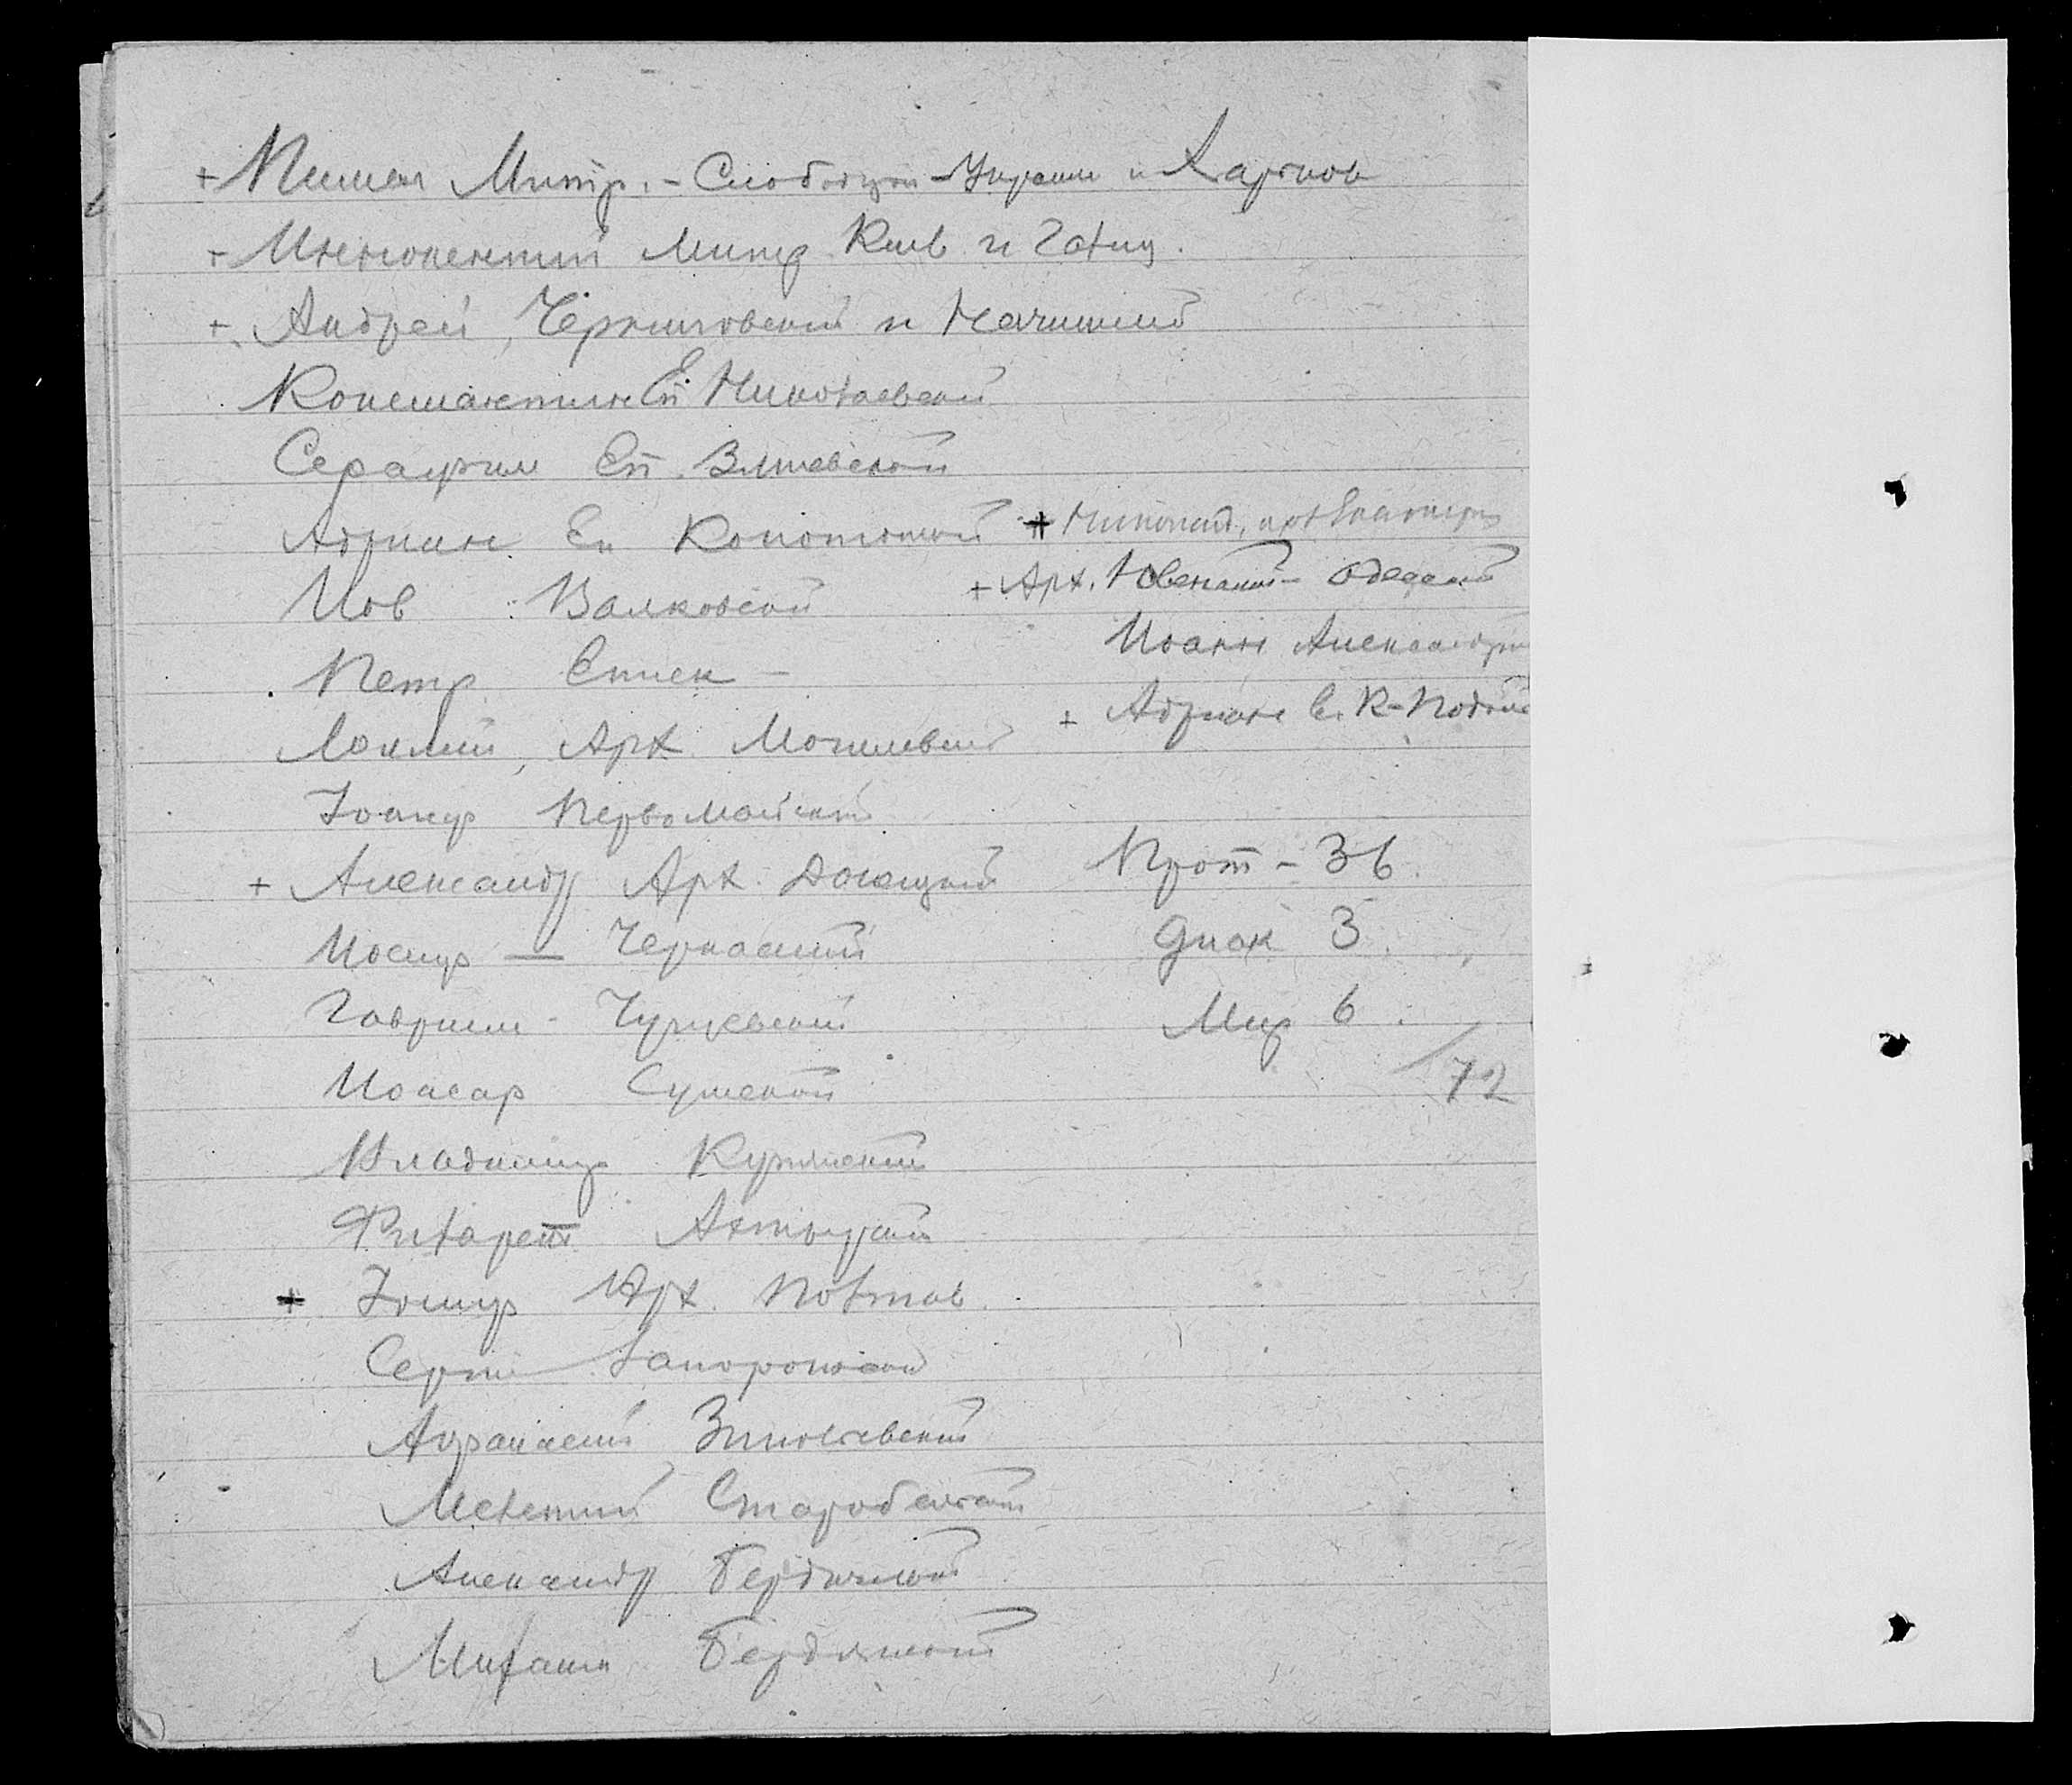 + Пимен Митр. - Слободской - Украин и Харьков
+ Иннокентий Митр Киев и Галиц.
+ Андрей, Черниговский и Нежинский
Константин Еп Николаевский
Серафим Еп. Змиевской
Адриан Еп Конотопский
Иов Валковский
Петр Еписк -
Арх. Могилевский
Иоаки Первомайский
+ Александр Арх. Донецкий
Иосиф — Черкасский
Гавриил - Чугуевский
Иоасаф Сумской
Владимир Купянский
Филарет Ахтырский
+ Иосиф Арх. Полтав.
Сергий Запорожский
Афанасий Зиновьевский
Мелетий Старобельский
Александр Бердичевский
Михаил Бердянский
+ Николай, арх Екатерин
+ Арх. Ювеналий - Одесский
Иоанн Александрий
+ Адриан Е. К-Подольс
Прот - 36.
Диак 3.
Мир 6.
72